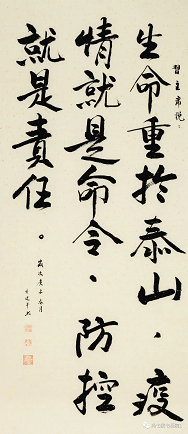 習主席説：
生命重於泰山，疫
情就是命令、防控
就是責任。
歲次庚子春月